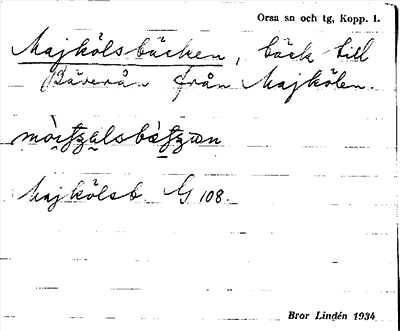 Orsa sn och tg, Kopp. l.
Majkölsbäcken, bäck till
Bäverån från Majkölen.
Majkölsb G 108.
Bror Lindén 1934